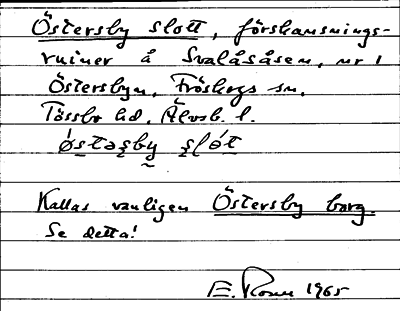 Östersby slott, förskansnings-
ruiner å Svalåsåsen, nr 1
Östersbyn, Fröskogs sn,
Tössbo hd, Älvsb. l.
ø̀stəʂby ʂlót
Kallas vanligen Östersby borg.
Se detta!
E. Rosen 1965